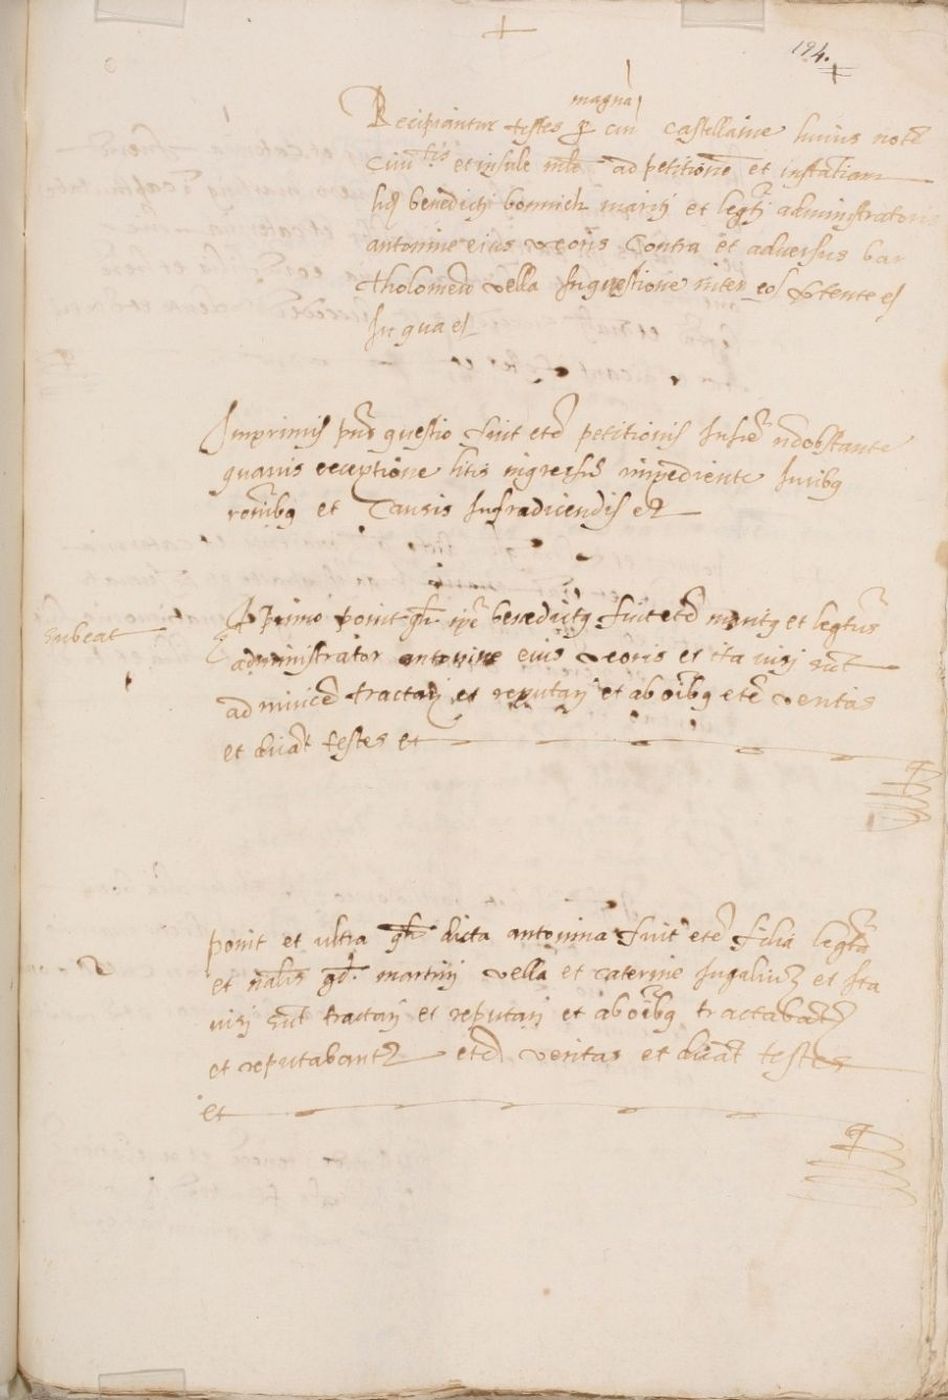 194.
magna
Recipiantur testes p cur castellanie huius note
Ciuitis et insule mle ad petitione et instatiam
hd benedicti bonnich mariti et legti administratoris
antonine eius uxoris Contra et aduersus bar
tholomeu vella In questione inter eos vertente es
In qua es
Imprimis pns questio fuit et petitionis nobstante
quauis exceptione litis ingressu impediente Iuribq
ronibq et Causis Infradicendis et
Primo ponit qh ipe benedictq fuit et e maritq et legtus
Iubeat
administrator antonine eius uxoris et ita uisi sut
ad inuice tractati et reputati et ab oibq et e veritas
et dicat testes et
ponit et ultra qh dicta antonina fuit et e filia legta
et nalis qd. martini vella et caterine Iugaliu et Ita
2
uisi sut tractati et reputati et ab oibq tractabat
et reputabant et e veritas et dicat testes
et